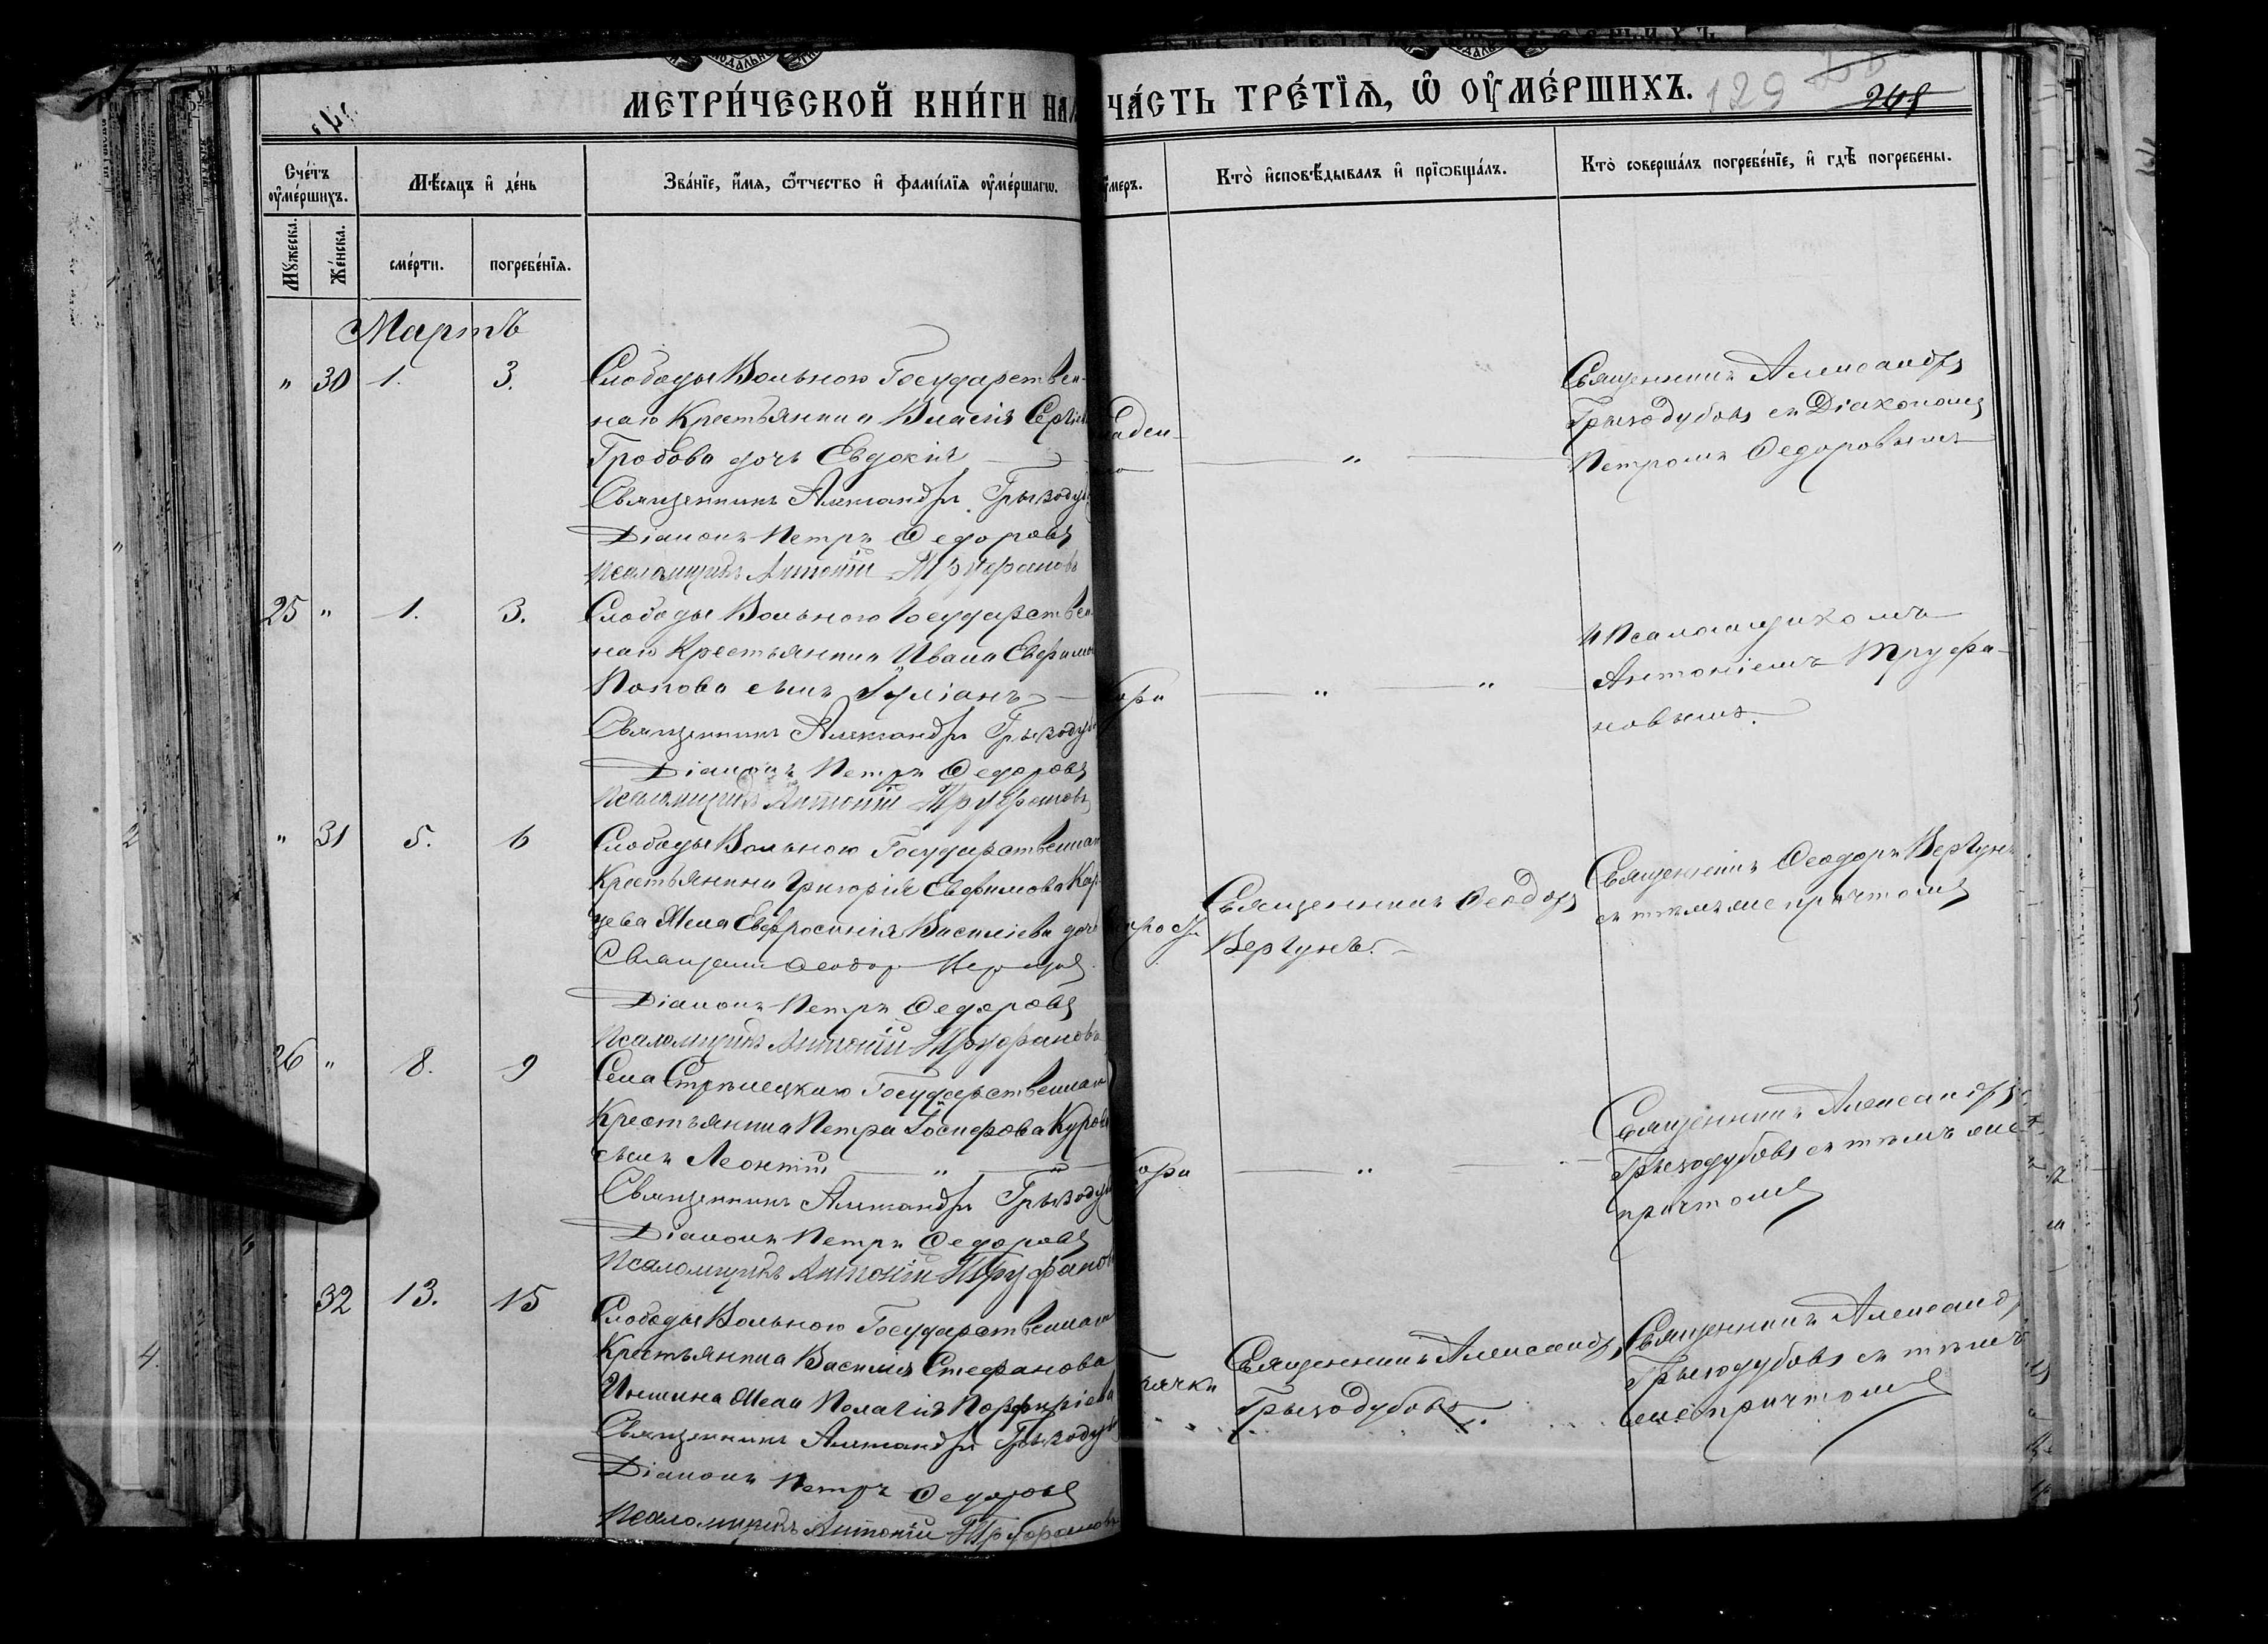 МЕТРИ́ЧЕСКОЙ КНИ́ГИ НА
ЧА́СТЬ ТРЕ́ТЇѦ, Ѡ ОУМЕ́РШИХЪ.
129
248
Сче́тъ оумершихъ.
Мѣсяцъ и де́нь
Зва́нїе, и́мя, ѻтчество и фами́лїя оуме́ршагѡ.
оумеръ.
Кто̀ исповѣ́дывалъ и прїѡбща́лъ.
Кто̀ соверша́лъ погребе́нїе, и гдѣ̀ погребены.
Мужеска.
Женска.
сме́рти.
погребе́нїя.
Мартъ
" 30 1. 3.
Слободы Вольною Государствен-
наго Крестьянина Власія
Гробова дочь Евдокія
Священникъ Александръ Грызодуб
Діаконъ Петръ Ѳедоровъ
Псаломщикъ Антоній Труфановъ
"
Священникъ Александръ
Грызодубовъ съ Діакономъ
Петромъ Ѳедоровымъ
25 " 1. 3.
Слободы Вольною Государствен
наго Крестьянина Ивана Евфимо
Попова сынъ Іуліанъ
Священникъ Александръ Грызодуб
Діаконъ Петръ Ѳедоровъ
Псаломщикъ Антоній Труфановъ
" "
и Псаломщикомъ
Антоніемъ Труфа-
новымъ.
" 31 5. 6
Слободы Вольною Государственнаго
Крестьянина Григорія Евфимова Кар-
цева жена Евфросинія Василіева дочь
Священникъ Ѳеодоръ
Діаконъ Петръ Ѳедоровъ
Псаломщикъ Антоній Труфановъ
Священникъ Ѳеодоръ
Вергунъ.
Священникъ Ѳеодоръ Вергунъ
съ тѣмъ же причтомъ
26 " 8. 9
Села Стрѣлецкаго Государственнаго
Крестьянина Петра Іосифова Курова
сынъ Леонтій "
Священникъ Александръ Грызодуб
Діаконъ Петръ Ѳедоровъ
Псаломщикъ Антоній Труфанов
"
Священникъ Александръ
Грызодубовъ съ тѣмъ же
причтомъ
32 13. 15
Слободы Вольною Государственнаго
Крестьянина Василія Стефанова
Иншина жена Пелагія Порфиріева
Священникъ Александръ Грызодуб
Діаконъ Петръ Ѳедоровъ
Псаломщикъ Антоній Труфановъ
Священникъ Александръ
Грызодубовъ.
Священникъ Александръ
Грызодубовъ съ тѣмъ
же причтомъ